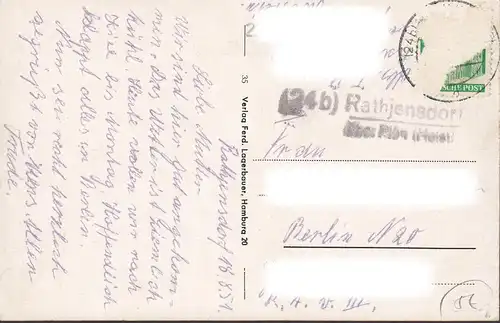 Rathjensdorf 16.8.51.
Liebe Mutter
Wir sind hier gut angekom-
men. Das Wetter ist ziemlich
kühl. Heute wollen wir nach
Kiel bis Montag. Hoffentlich
klappt alles in Berlin.
Nun sei recht herzlich
gegrüßt von Hans, Allen
Frieda.
35 Verlag Ferd. Lagerbauer, Hamburg 20
(24b) Rathjensdorf
über Plön (Holst)
(24b)
SCHE POST
Frau
Berlin N20